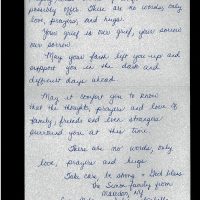 possibly offer. There are no words, only
love, prayers, and hugs.
Your grief is our grief, your sorrow
our sorrow.
May your faith lift you up and
support you in the days and
different days ahead.
May it comfort you to know
that the thoughts, prayers and love of
family, friends and even strangers
surround you at this time.
There are no words, only
love, prayers and hugs.
Take care, be strong + God bless
the family from